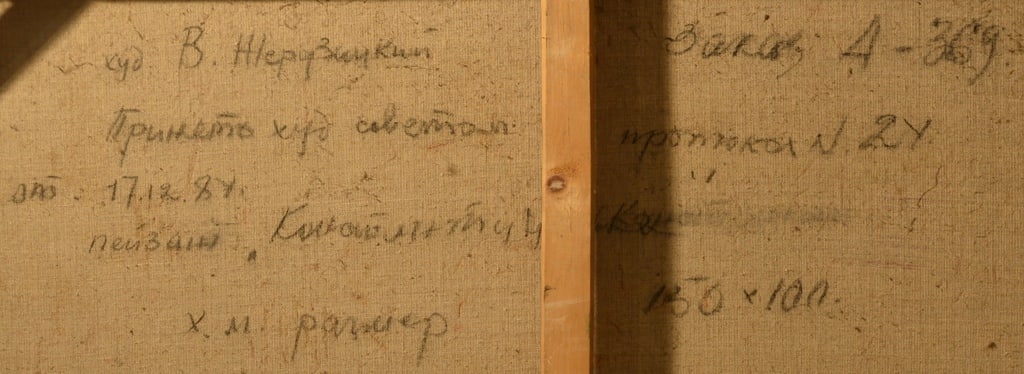 худ В. Жерузицкий Заказ Д-369
Принято худ советом протокол N. 24.
от. 17.12.84.
пейзаж
х. м. размер 150 × 100.